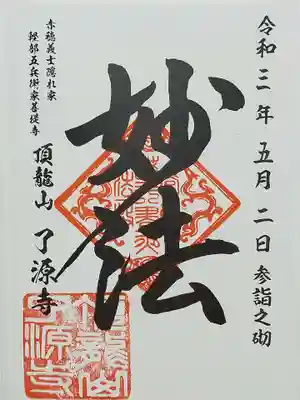 令和三年五月二日 参詣之砌
妙法
赤穂義士隠れ家
軽部五兵衛家菩提寺
頂龍山 了源寺